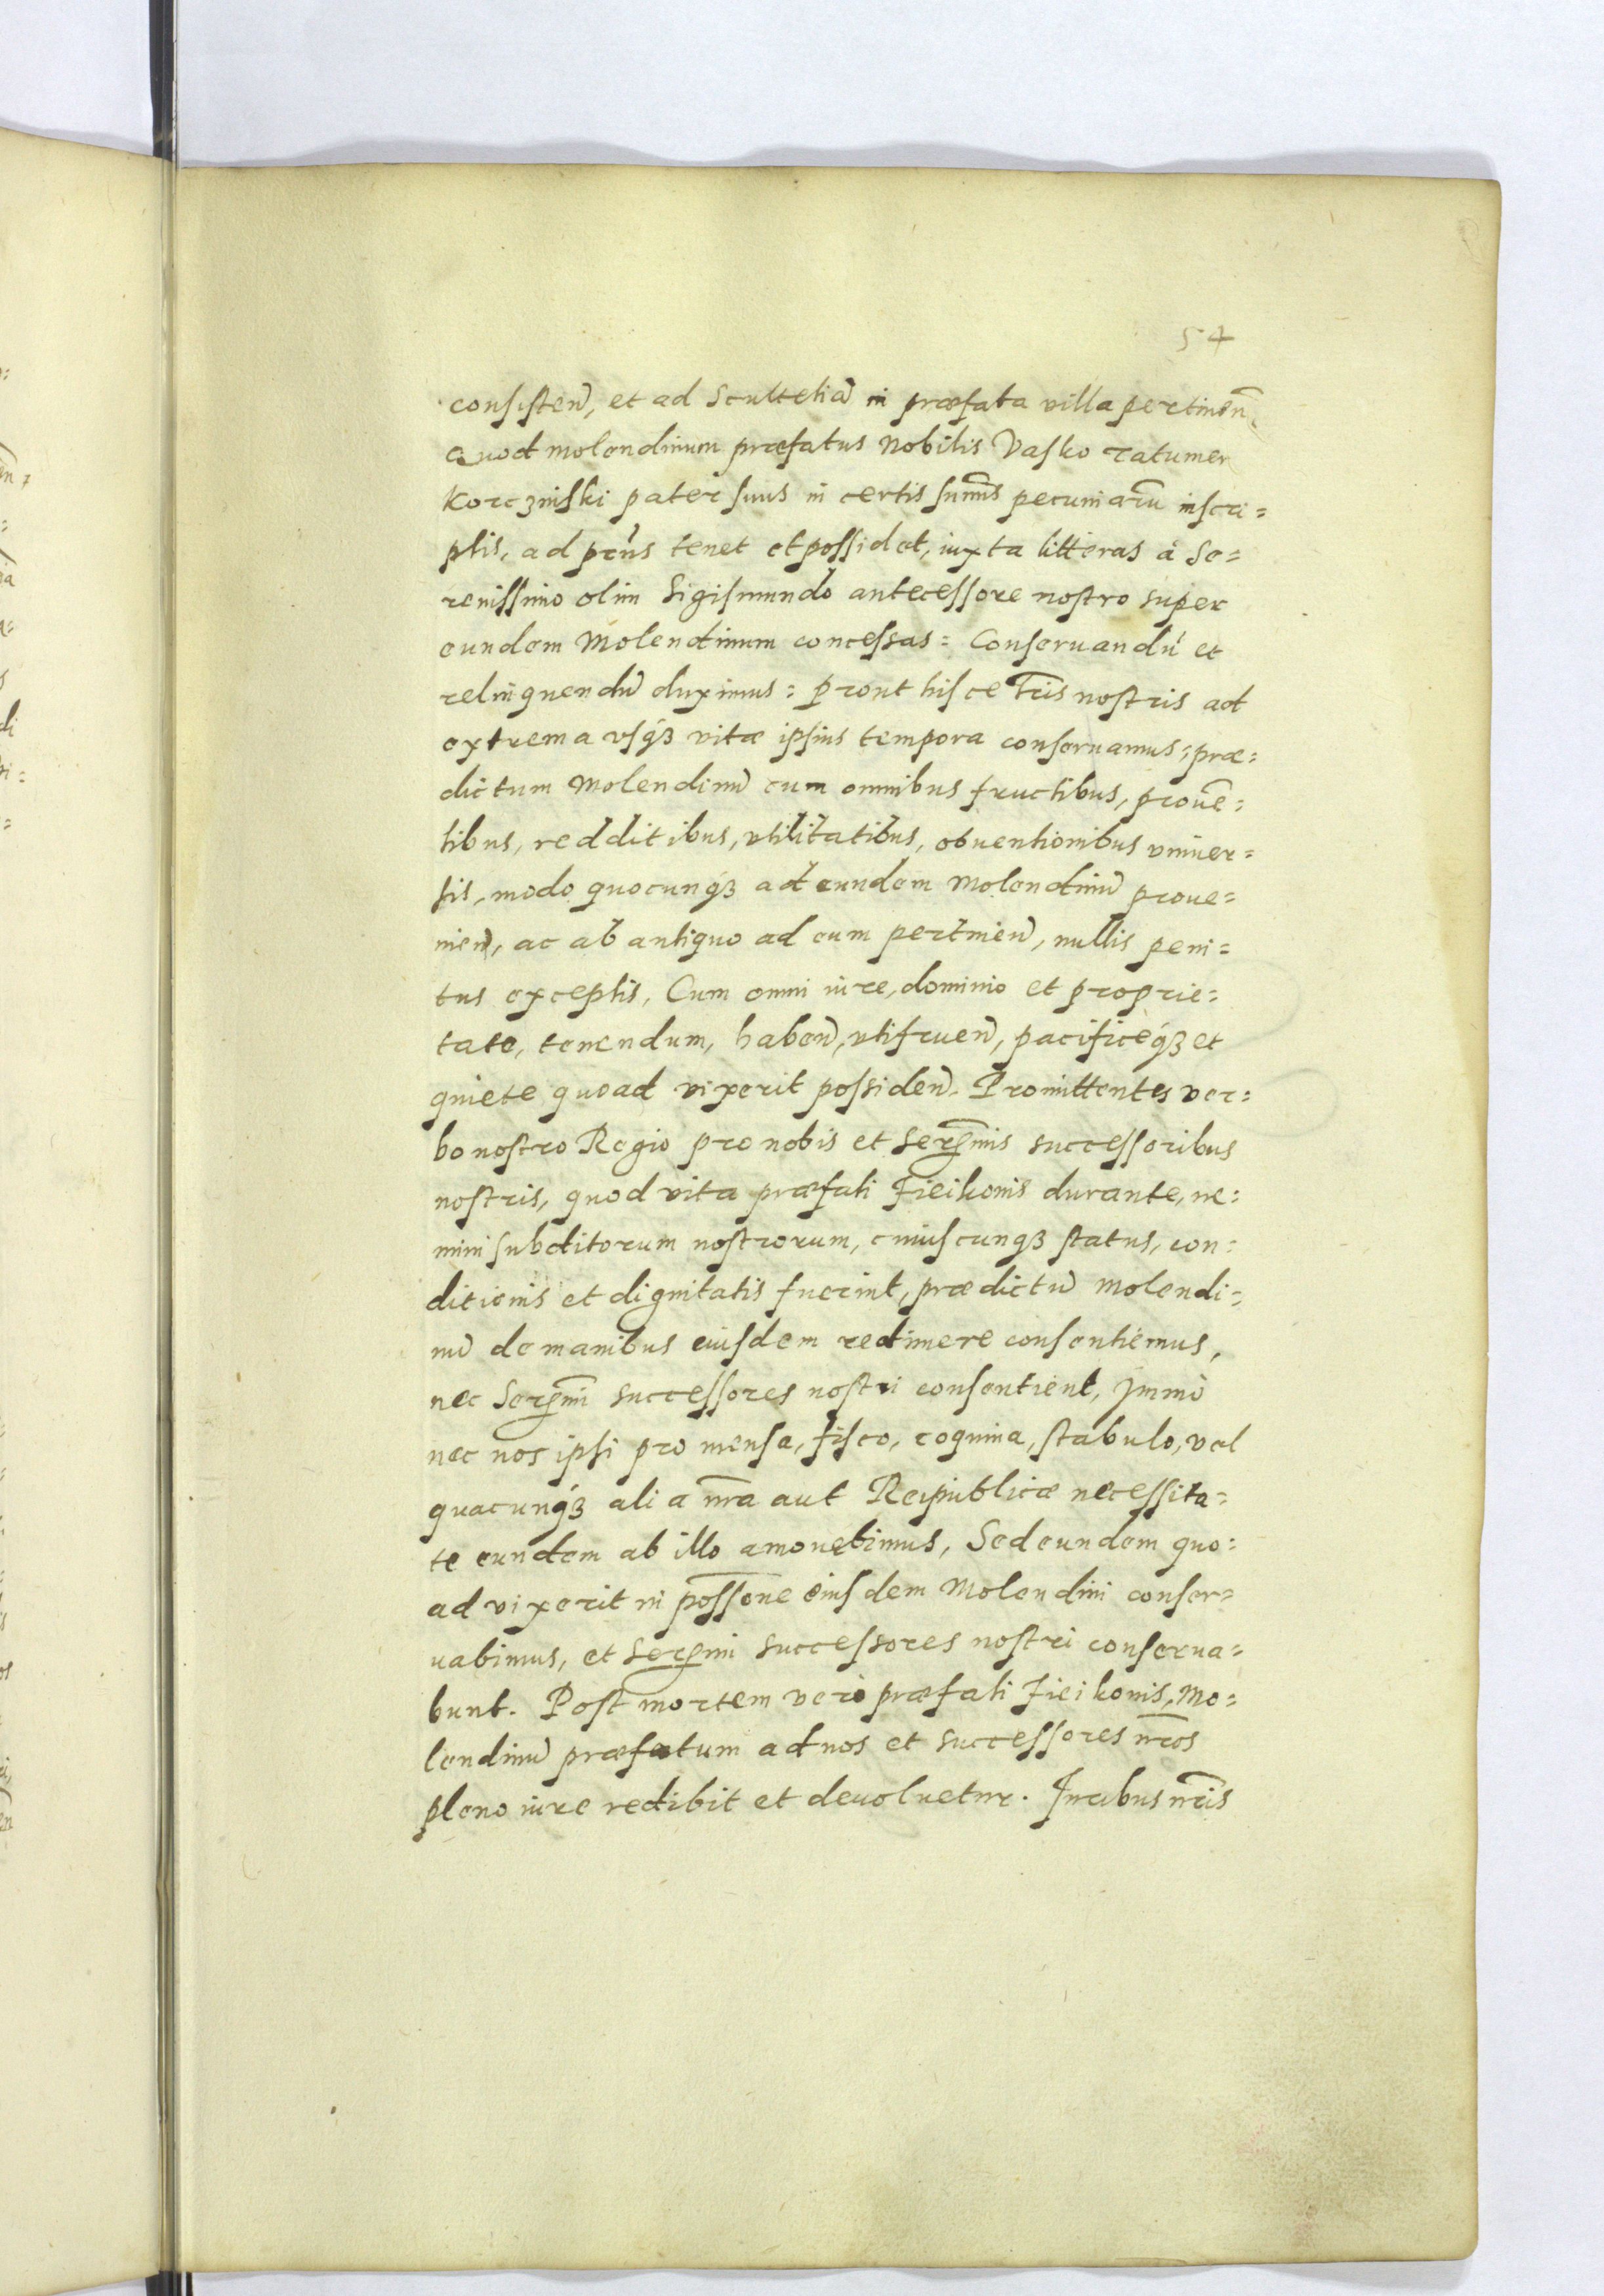 54
consisten̄, et ad Scultetiā in præfata villa pertinen̄.
Quod molendinum præfatus Nobilis Vasko Tatumer
Korczinski pater suus in certis sum̄is pecuniarū inscri=
ptis, ad pn̄s tenet et possidet, iuxta litteras à Se=
renissimo olim Sigismundo antecessore nostro super
eundem Molendinum concessas: Conseruandū et
relinquendū duximus: prout hisce l̄ris nostris ad
extrema usq́ꝫ vitæ ipsius tempora conseruamus: præ=
dictum Molendinū cum omnibus fructibus, prouē=
tibus, redditibus, vtilitatibus, obuentionibus vniuer=
sis, modo quocunq́ꝫ ad eundem Molendinū proue=
nien̄, ac ab antiquo ad eum pertinen̄, nullis peni=
tus exceptis, Cum omni iure, dominio et proprie=
tate, tenendum, haben̄, vtifruen̄, pacificeq́ꝫ et
quiete quoad vixerit possiden̄. Promittentes ver=
bo nostro Regio pro nobis et Serenīmis successoribus
nostris, quod vita præfati Fieikonis durante, ne=
mini subditorum nostrorum, cuiuscunqꝫ status, con=
ditionis et dignitatis fuerint, prædictū Molendi=
nū de manibus eiusdem redimere consentiemus,
nec Serenīmi successores nostri consentient, Immò
nec nos ipsi pro mensa, fisco, coquina, stabulo, vel
quacunq́ꝫ alia nr̄a aut Reipublicæ necessita=
te eundem ab illo amouebimus, Sed eundem quo=
ad vixerit in poss̄one eiusdem Molendini conser=
uabimus, et Serenīmi successores nostri conserua=
bunt. Post mortem verò præfati Fieikonis, Mo=
lendinū præfatum ad nos et successores nr̄os
pleno iure redibit et deuoluetur. Iuribus nr̄is